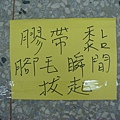 膠帶黏
腳毛瞬間
拔起